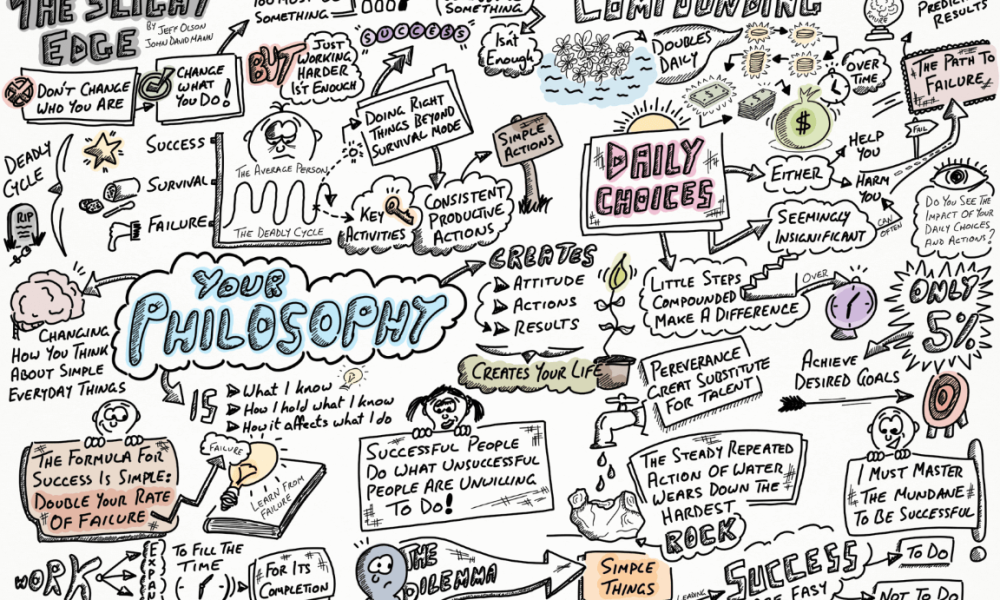 THE SLIGHT
EDGE
BY JEFF OLSON
JOHN DAVID MANN
SOMETHING.
SUCCESS
SOMETHING
COMPOUNDING
RESULTS
DON'T CHANGE
WHO YOU ARE
CHANGE
WHAT
YOU DO!
BUT
JUST
WORKING
HARDER
ISN'T ENOUGH
ISN'T
ENOUGH
DOUBLES
DAILY
OVER
TIME
THE PATH TO
FAILURE
DOING RIGHT
THINGS BEYOND
SURVIVAL MODE
SIMPLE
ACTIONS
DEADLY
CYCLE
RIP
SUCCESS
SURVIVAL
FAILURE
THE AVERAGE PERSON
THE DEADLY CYCLE
KEY
ACTIVITIES
CONSISTENT
PRODUCTIVE
ACTIONS
$
DAILY
CHOICES
EITHER
HELP
YOU
HARM
YOU
FAIL
CAN
OFTEN
SEEMINGLY
INSIGNIFICANT
DO YOU SEE THE
IMPACT OF YOUR
DAILY CHOICES
AND ACTIONS?
YOUR
PHILOSOPHY
CREATES
ATTITUDE
ACTIONS
RESULTS
CREATES YOUR LIFE
LITTLE STEPS
COMPOUNDED
MAKE A DIFFERENCE
OVER
ONLY
5%
CHANGING
HOW YOU THINK
ABOUT SIMPLE
EVERYDAY THINGS
IS
WHAT I KNOW
HOW I HOLD WHAT I KNOW
HOW IT AFFECTS WHAT I DO
PERVERANCE
GREAT SUBSTITUTE
FOR TALENT
ACHIEVE
DESIRED GOALS
THE FORMULA FOR
SUCCESS IS SIMPLE:
DOUBLE YOUR RATE
OF FAILURE
FAILURE
LEARN FROM
FAILURE
SUCCESSFUL PEOPLE
DO WHAT UNSUCCESSFUL
PEOPLE ARE UNWILLING
TO DO!
THE STEADY REPEATED
ACTION OF WATER
WEARS DOWN THE
HARDEST
ROCK
I MUST MASTER
THE MUNDANE
TO BE SUCCESSFUL
WORK
TO FILL THE
TIME
FOR ITS
COMPLETION
THE
DILEMMA
SIMPLE
THINGS
LEADING
SUCCESS
EASY
TO DO
NOT TO DO